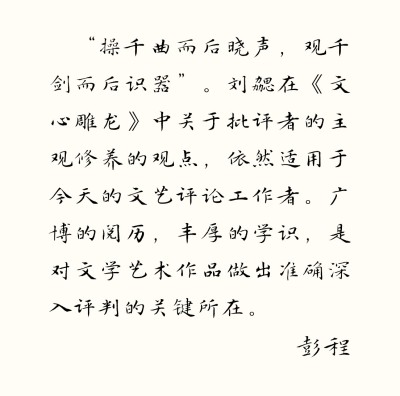 “操千曲而后晓声，观千
剑而后识器”。刘勰在《文
心雕龙》中关于批评者的主
观修养的观点，依然适用于
今天的文艺评论工作者。广
博的阅历，丰厚的学识，是
对文学艺术作品做出准确深
入评判的关键所在。
彭程